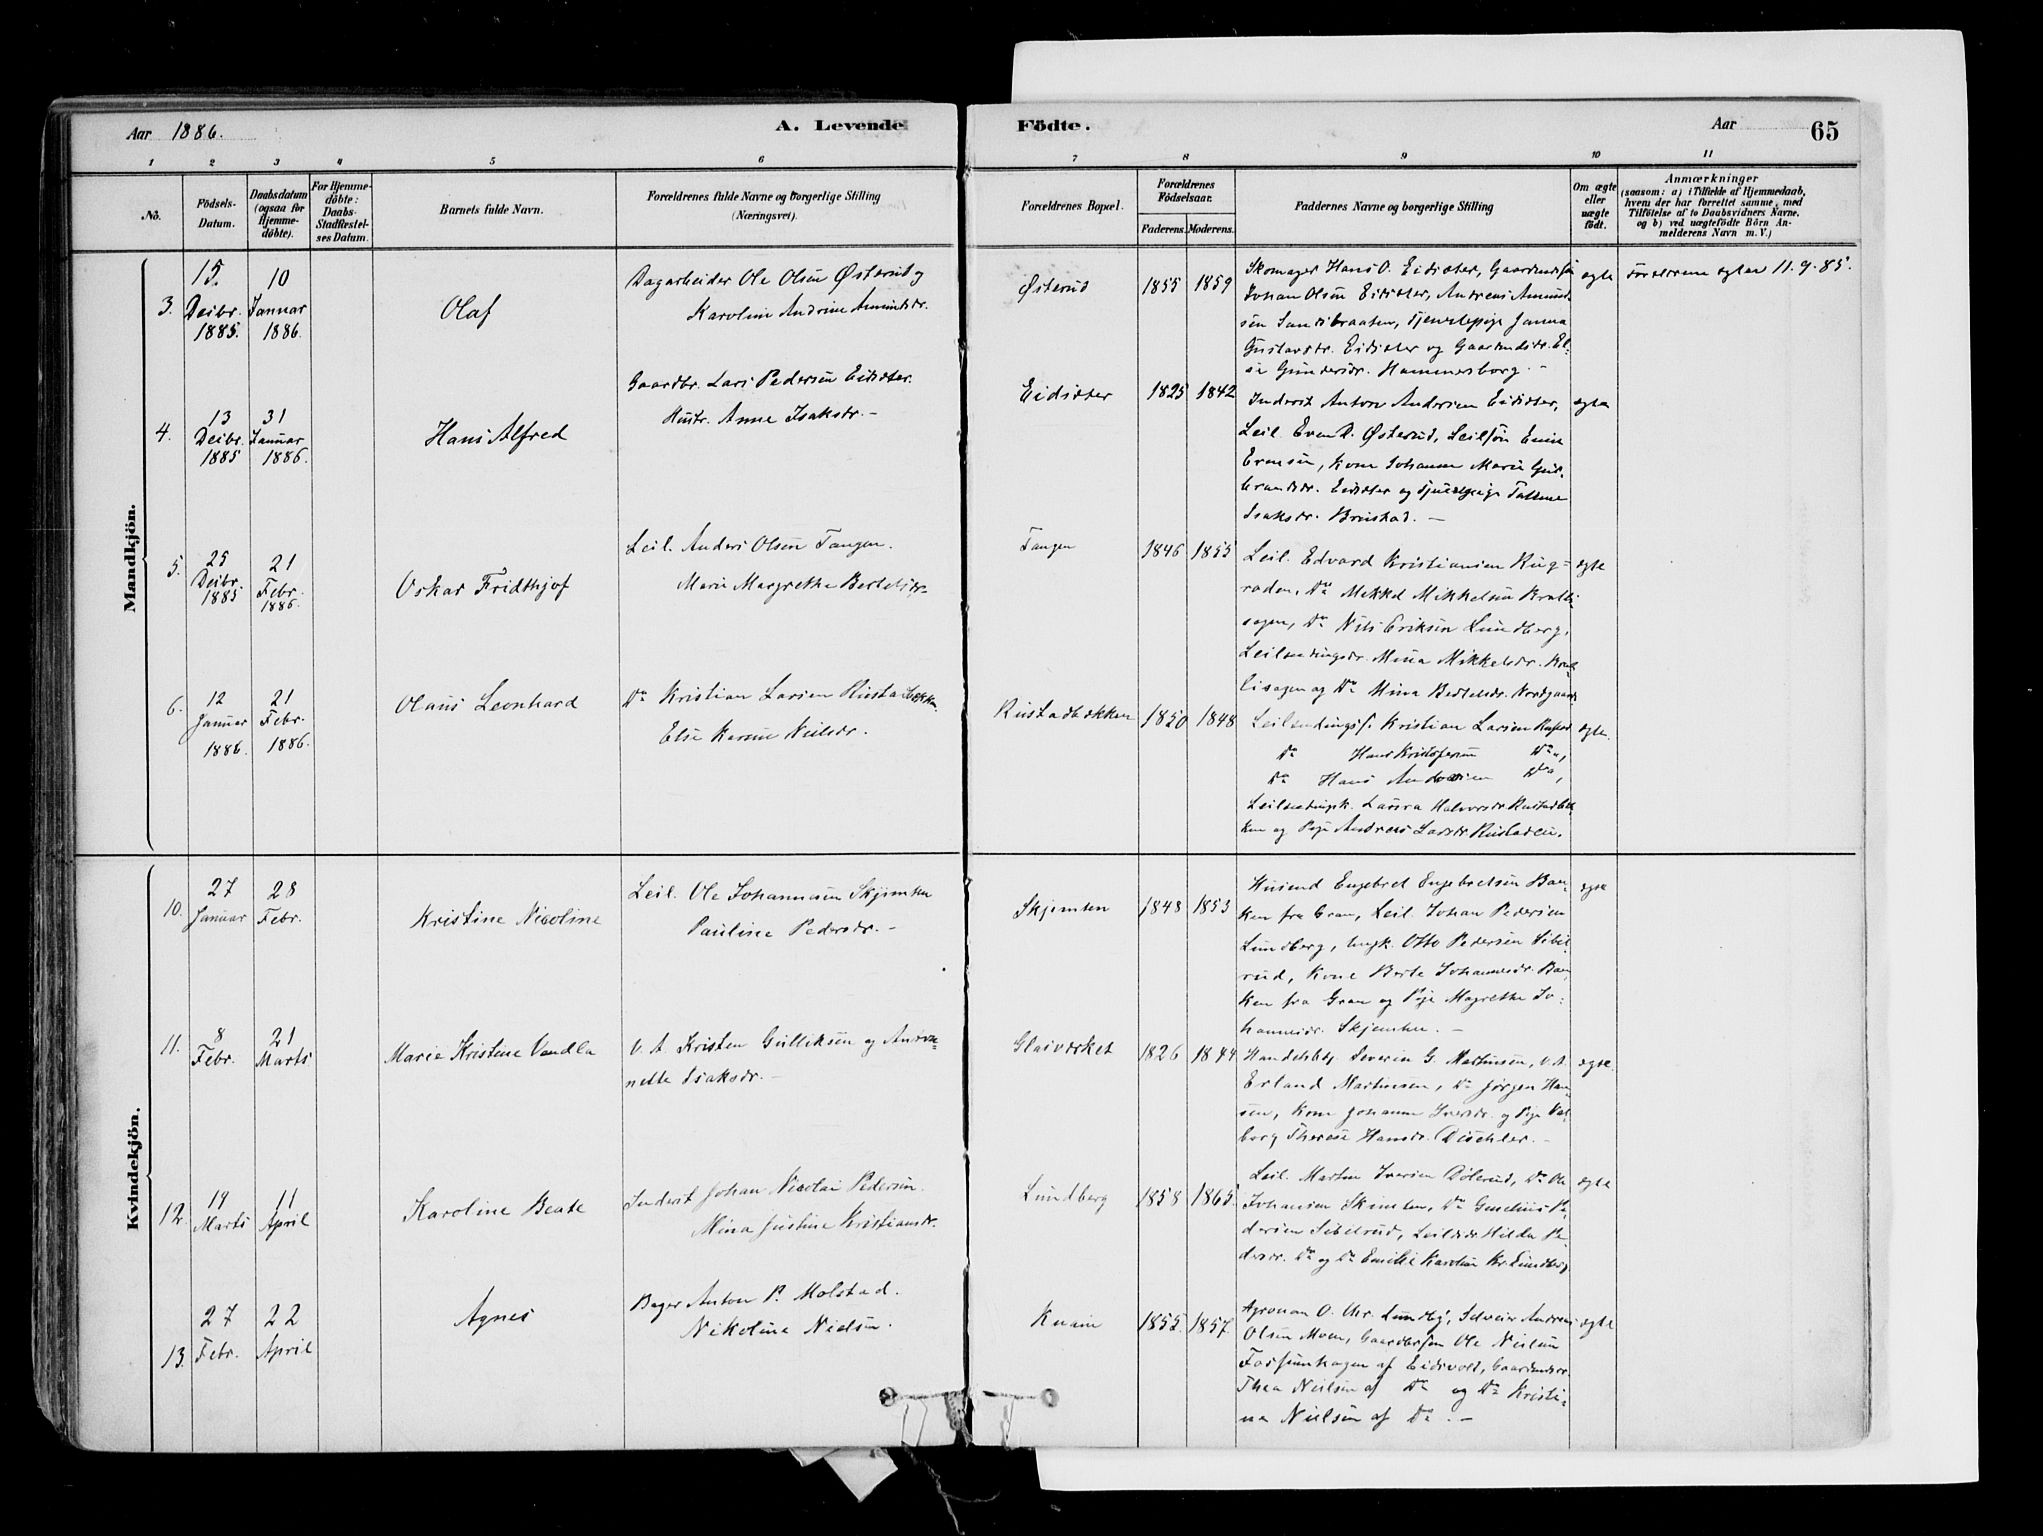 Aar 1886. A. Levende Födte. Aar 65
1 2 3 4 5 6 7 8 9 10 11
No. Födsels-Datum. Daabsdatum (ogsaa for Hjemme-döbte). For Hjemme-döbte: Daabs-Stadfæstel-ses Datum. Barnets fulde Navn. Forældrenes fulde Navne og borgerlige Stilling (Næringsvei). Forældrenes Bopæl. Forældrenes Födselsaar. Faderens. Moderens. Faddernes Navne og borgerlige Stilling Om ægte eller uægte födt. Anmærkninger
(saasom: a) i Tilfælde af Hjemmedaab,
hvem der har forrettet samme, med
Tilföielse af to Daabsvidners Navne,
og b) ved uægtefödte Börn An-
melderens Navn m. V.)
Mandkjön.
3. 15. Decbr. 1885. 10 Januar 1886. Olaf
Dagarbeider Ole Olsen Østerud og
Karoline Andrine Amundsdr.
Østerud 1855 1859
Skomager Hans O. Eidsæter,
Johan Olsen Eidsæter, Andreas Amund-
sen Sandbraaten, Tjenestepige Janna
Gustavsdr. Eidsæter og Gaardmdsdr. El-
se Gundersdr. Hammersborg. -
ægte Forældrene ægtev. 11.9.85.
4. 13 Decbr. 1885 31 Januar 1886. Hans Alfred
Gaardbr. Lars Pedersen Eidsæter.
Hustr. Anne Isaksdr. -
Eidsæter 1825 1842
Inderst Anton Andersen Eidsæter,
Leil. Even D. Østerud, Leilsön
Evensen, Kone Johanne Marie Gul-
brandsdr. Eidsæter og Tjenestepige
Isaksdr. -
ægte
5. 25 Decbr. 1885 21 Febr. 1886. Oskar Fridthjof
Leil. Anders Olsen Tangen.
Marie Margrethe Bertelsdr.
Tangen 1846 1855
Leil. Edvard Kristiansen Rug-
raden, Do Mikkel Mikkelsen Kralli-
sagen, Do Nils Eriksen Lundberg,
Leilændingsdr. Mina Mikkelsdr. Kral-
lisagen og Do Mina Bertelsdr. Nordgaard
ægte
6. 12 Januar 1886. 21 Febr. 1886. Olaus Leonhard
Do Kristian Larsen Rustadbækken
Else Karine Nielsdr.
Rustadbækken 1850 1848
Leilændingsf. Kristian Larsen
Do Hans Kristofersen Do,
Do Hans Andersen Do,
Leilændingk. Laura Halvorsdr. Rustadbæk-
ken og Pige Andrea Larsdr. Rustadeie.
ægte.
Kvindekjön.
10. 27 Januar 28 Febr. Kristine Nicoline
Leil. Ole Johannesen Skjemten
Pauline Pedersdr. -
Skjemten 1848 1853
Husmd Engebret Engebretsen Bak-
ken fra Gran, Leil. Johan Pedersen
Lundberg, Ungk. Otto Pedersen Sibil-
rud, Kone Berte Johannesdr. Bak-
ken fra Gran og Pige Magrethe Jo-
hannesdr. Skjemten. -
ægte
11. 8 Febr. 21 Marts Marie Kristine Vendla
V. A. Kristen Gulliksen og
nette Isaksdr. -
Glasværket 1826 1844
Handelsbetj. Severin G. Martinsen, V. A.
Erland Martinsen, Do Jørgen Han-
sen, Kone Johanne Iversdr. og Pige Val-
borg Therese Hansdr. Dischler. -
ægte.
12. 19 Marts 11 April Karoline Beate
Inderst Johan Nicolai Pedersen.
Mina Justine Kristiansdr.
Lundberg 1858 1865.
Leil. Martin Iversen Dølerud, Do Ole
Johansen Skjemten, Do Gunelius Pe-
dersen Sibelrud, Hilda Pe-
dersdr. Do og Do Emilie Karoline Kr. Lundberg
ægte
13. 27 Febr. 22 April Agnes
Bager Anton P. Molstad.
Nikoline Nielsen.
Knaim 1855. 1857.
Agronom O. Chr. Lundby, Andreas
Olsen Moen, Gaardbrsön Ole Nielsen
Fossumhagen af Eidsvold, Gaardmdsdr.
Thea Nielsen af Do og Do Kristi-
ne Nielsen af Do. -
ægte